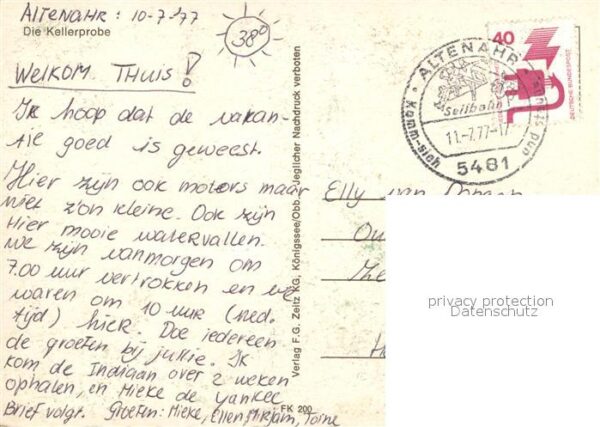 Altenahr: 10-7-77
Die Kellerprobe
38°
Welkom Thuis!
Ik hoop dat de vakan-
tie goed is geweest.
Hier zijn ook motors maar
niet z'on kleine. Ook zijn
Hier mooie watervallen.
we zijn vanmorgen om
7.00 uur vertrokken en we
waren om 10 uur (ned.
tijd) hier. Doe iedereen
de groeten bij jullie. Ik
kom de Indiaan over 2 weken
ophalen, en Mieke de yankee
Brief volgt. Groeten: Mieke, Ellen, Mirjam, Toine
Verlag F.G. Zeitz KG, Königssee/Obb. Jeglicher Nachdruck verboten
FK 200
40
DEUTSCHE BUNDESPOST
ALTENAHR
Seilbahn
11.-7.77-17
Komm-sieh und
5481
Elly van
privacy protection
Datenschutz